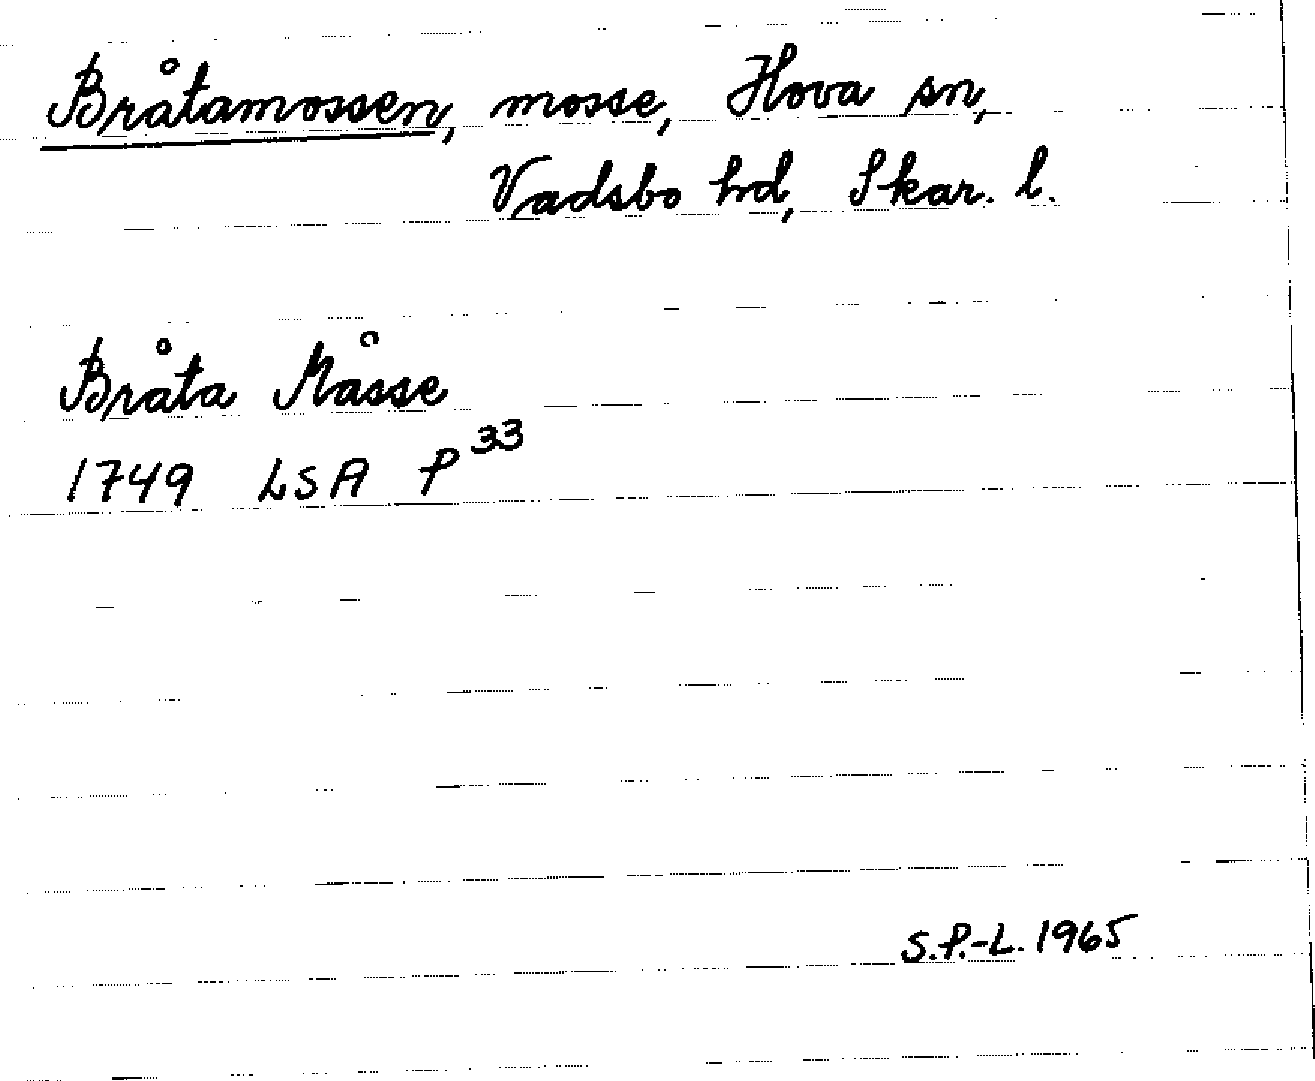 Bråtamossen, mosse, Hova sn,
Vadsbo hd, Skar. l.
Bråta Måsse
1749 LSA P 33
S.P.-L. 1965